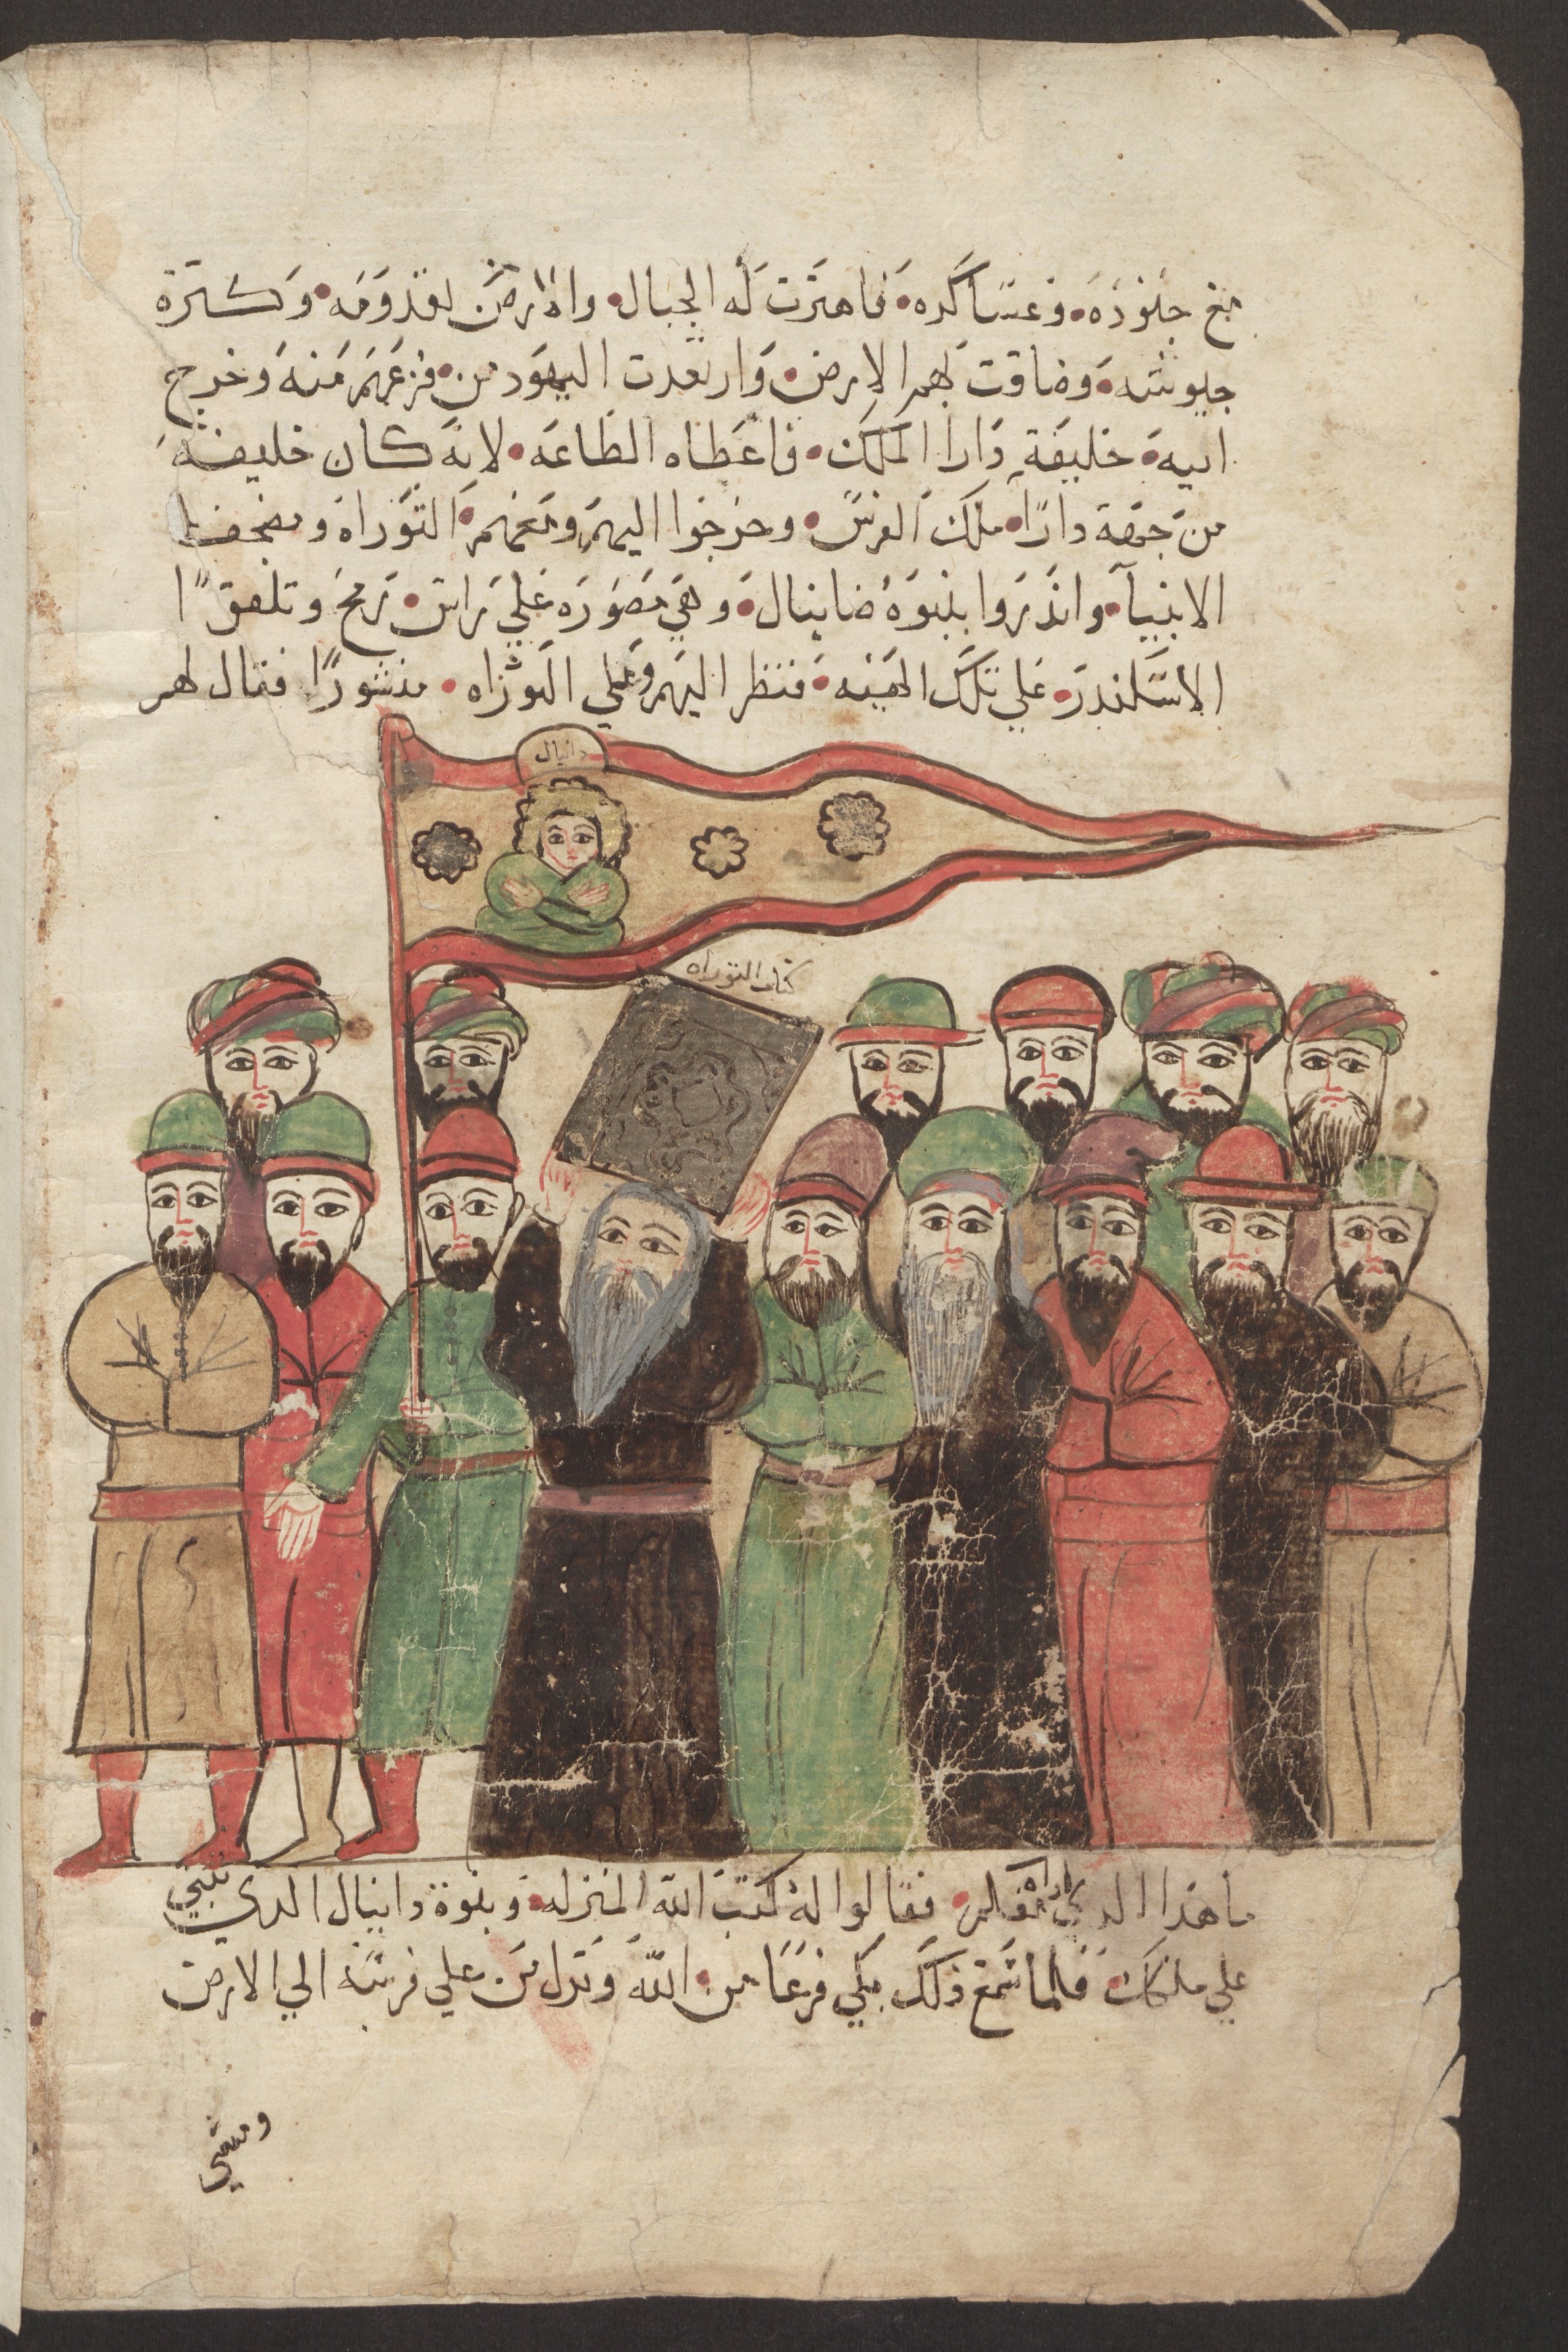 مع جنوده وعساكره فاهتزت له الجبال والارض لقدومه وكترة
جيوشه وضاقت لهم الارض وارتعدت اليهود من فزعهم منه وخرج
اليه خليفة دارا الملك فاعطاه الطاعه لانه كان خليفة
من جهة دارا ملك الفرس وخرجوا اليهم ومعهم التوراه ومصحف
الانبيآ وانذروا بنبوة ضانيال وهي مصوره علي راس رمح وتلقوا
الاسكندر علي تلك الهيئه فنظر اليهم وعلي التوراه منشورا فقال لهم
دانيال
كتاب التوراه
ما هذا الدي اراه معكم فقالوا له كتب الله المنزله وبنوة دانيال الدي تنبي
علي ملكك فلما سمع ذلك بكي فزعا من الله ونزل من علي فرسه الي الارض
ومشي